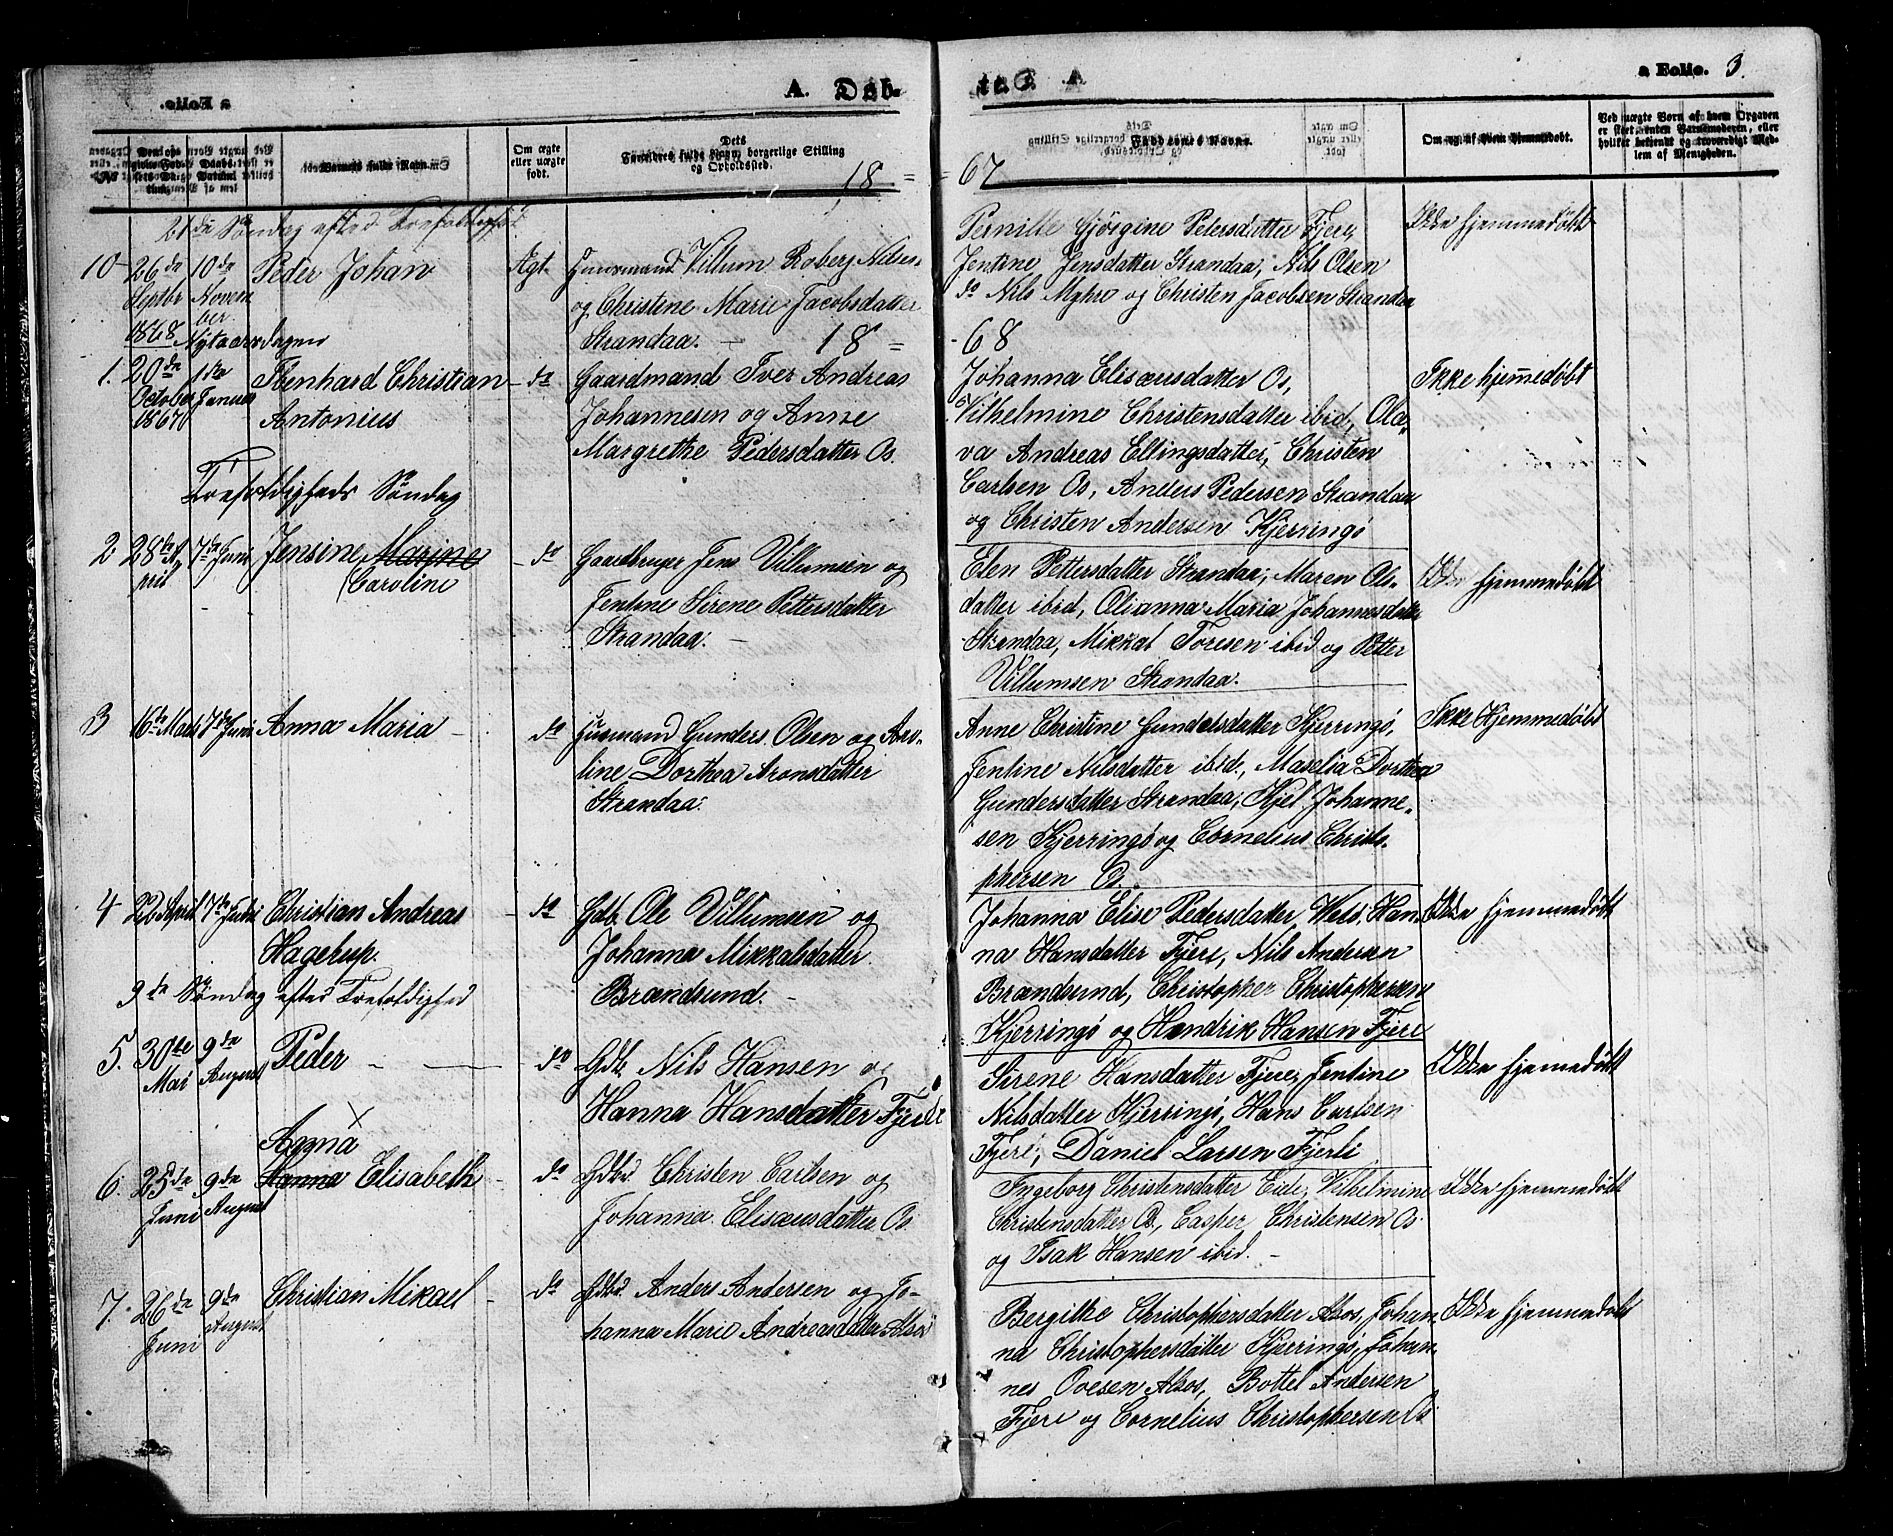 A. Døb-
a Folio. 3.
No
Barnets fulde Navn.
Om ægte
eller uægte
født.
Dets
Forældres fulde Navn, borgerlige Stilling
og Opholdssted.
Faddernes Navne.
Om og af hvem hjemmedøbt.
Ved uægte Børn af hvem Opgaven
er skeet, enten Barnemoderen, eller
hvilket bekjendt og troværdigt Med-
lem af Menigheden.
18 = = 67
21de Søndag efter Trefoldighed
10 26de Septbr 10de November Peder Johan Ægt.
Huusmand Villum Roberg Nilsen
og Christine Marie Jacobsdatter
Strandaa.
Pernille Gjørgine Petersdatter Fjere,
Jentine Jensdatter Strandaa, Nils Olsen
do Nils Myhre og Christen Jacobsen Strandaa
Ikke hjemmedøbt
18 = - 68
1868 Nytaarsdagen
1. 20de October 1867 1ste Januar Ebenhard Christian
Antonius
do
Gaardmand Iver Andreas
Johannesen og Anne
Margrethe Pedersdatter Os.
Johanna Elisæusdatter Os,
Vilhelmine Christensdatter ibid, Ola-
va Andreas Ellingsdatter, Christen
Carlsen Os, Anders Pedersen Strandaa
og Christen Andersen Kjerringø
Ikke hjemmedøbt
Trefoldigheds Søndag
2 28de April 7de Juni Jensine Marine
(Caroline
do
Gaardbruger Jens Villumsen og
Jentine Sirene Pettersdatter
Strandaa.
Elen Pettersdatter Strandaa, Maren Ols-
datter ibid, Olianna Maria Johannesdatter
Strandaa, Mikkal Toresen ibid og Petter
Villumsen Strandaa.
Ikke hjemmedøbt
3 16de Marts 7de Juni Anna Maria
do
Husmand Gunders Olsen og Aro-
line Dorthea Aronsdatter
Strandaa.
Anne Christine Gundersdatter Kjerringø,
Jentine Nilsdatter ibid, Maselia Dorthea
Gundersdatter Strandaa, Kjel Johanne-
sen Kjerringø og Cornelius Christo-
phersen Os.
Ikke Hjemmedøbt
4 22 April 7de Juni Christian Andreas
Hagerup.
do
Gdb. Ole Villumsen og
Johanna Mikkalsdatter
Brændsund.
Johanna Elise Pedersdatter Vels, Han-
na Hansdatter Fjere, Nils Andersen
Brændsund, Christopher Christophersen
Kjerringø og Hendrik Hansen Fjere
Ikke hjemmedøbt
9de Søndag efter Trefoldighed
5. 30te Mai 9de August Peder
do
Gdb. Nils Hansen og
Hanna Hansdatter Fjere
Sirene Hansdatter Fjere, Jentine
Nilsdatter Kjerringø, Hans Carlsen
Fjere, Daniel Larsen Fjerli
Ikke hjemmedøbt
Agna
6. 25de Juni 9de August Hanna Elisabeth
do
Gdbd. Christen Carlsen og
Johanna Elisæusdatter Os
Ingeborg Christensdatter Eide, Vilhelmine
Christensdatter Os, Casper Christensen Os
og Isak Hansen ibid.
Ikke hjemmedøbt
7. 26de Juni 9de August Christian Mikael
do
Gdbd. Anders Andersen og Jo-
hanna Marie Andreasdatter Alsos
Bergitte Christophersdatter Alsos, Johan-
na Christophersdatter Kjerringø, Johan-
nes Ovesen Alsos, Bottel Andersen
Fjere og Cornelius Christophersen Os
Ikke hjemmedøbt